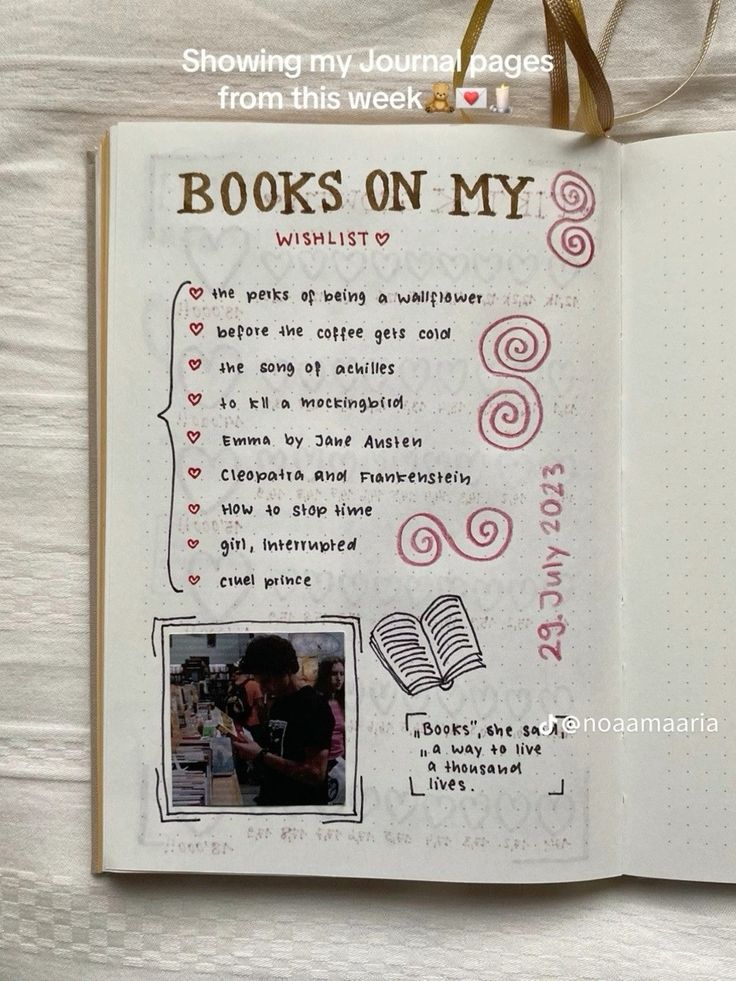 Showing my Journal pages
from this week🧸💌🕯️
BOOKS ON MY
WISHLIST♡
♡ the perks of being a wallflower
♡ before the coffee gets cold
♡ the song of achilles
♡ to kll a mockingbird
♡ Emma by Jane Austen
♡ Cleopatra and Frankenstein
♡ How to stop time
♡ girl, interrupted
♡ cruel prince
29. July 2023
„Books", she said,
„a way to live
a thousand
lives.
@noaamaaria